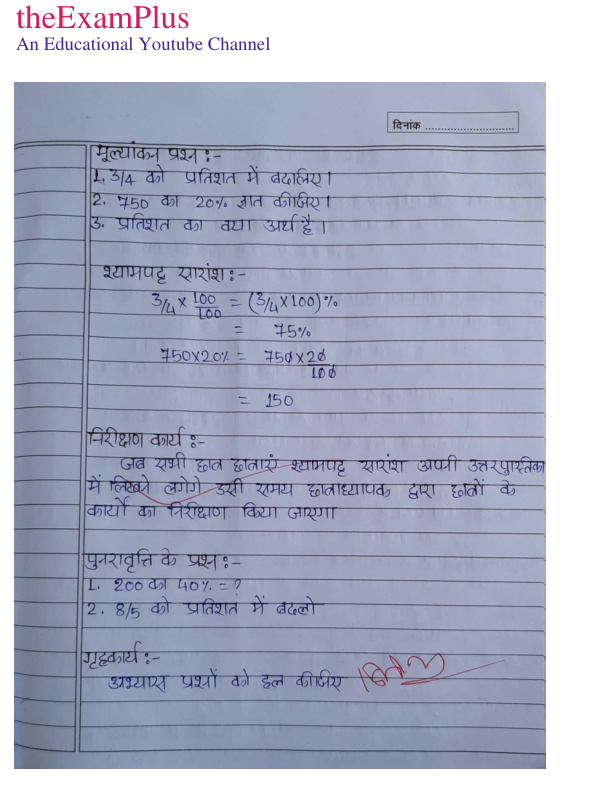 theExamPlus
An Educational Youtube Channel
दिनांक ............................
मूल्यांकन प्रश्न :-
1. 3/4 को प्रतिशत में बदलिए।
2. 750 का 20% ज्ञात कीजिए।
3. प्रतिशत का क्या अर्थ है।
श्यामपट्ट सारांश :-
3/4 × 100/100 = (3/4 × 100)%
= 75%
750×20% = 750×20/100
= 150
निरीक्षण कार्य :-
जब सभी छात्र छात्राएं श्यामपट्ट सारांश अपनी उत्तरपुस्तिका
में लिखने लगेंगे उसी समय छात्राध्यापक द्वारा छात्रों के
कार्यों का निरीक्षण किया जाएगा
पुनरावृत्ति के प्रश्न :-
1. 200 का 40% = ?
2. 8/5 को प्रतिशत में बदलो
गृहकार्य :-
अभ्यास प्रश्नों को हल कीजिए